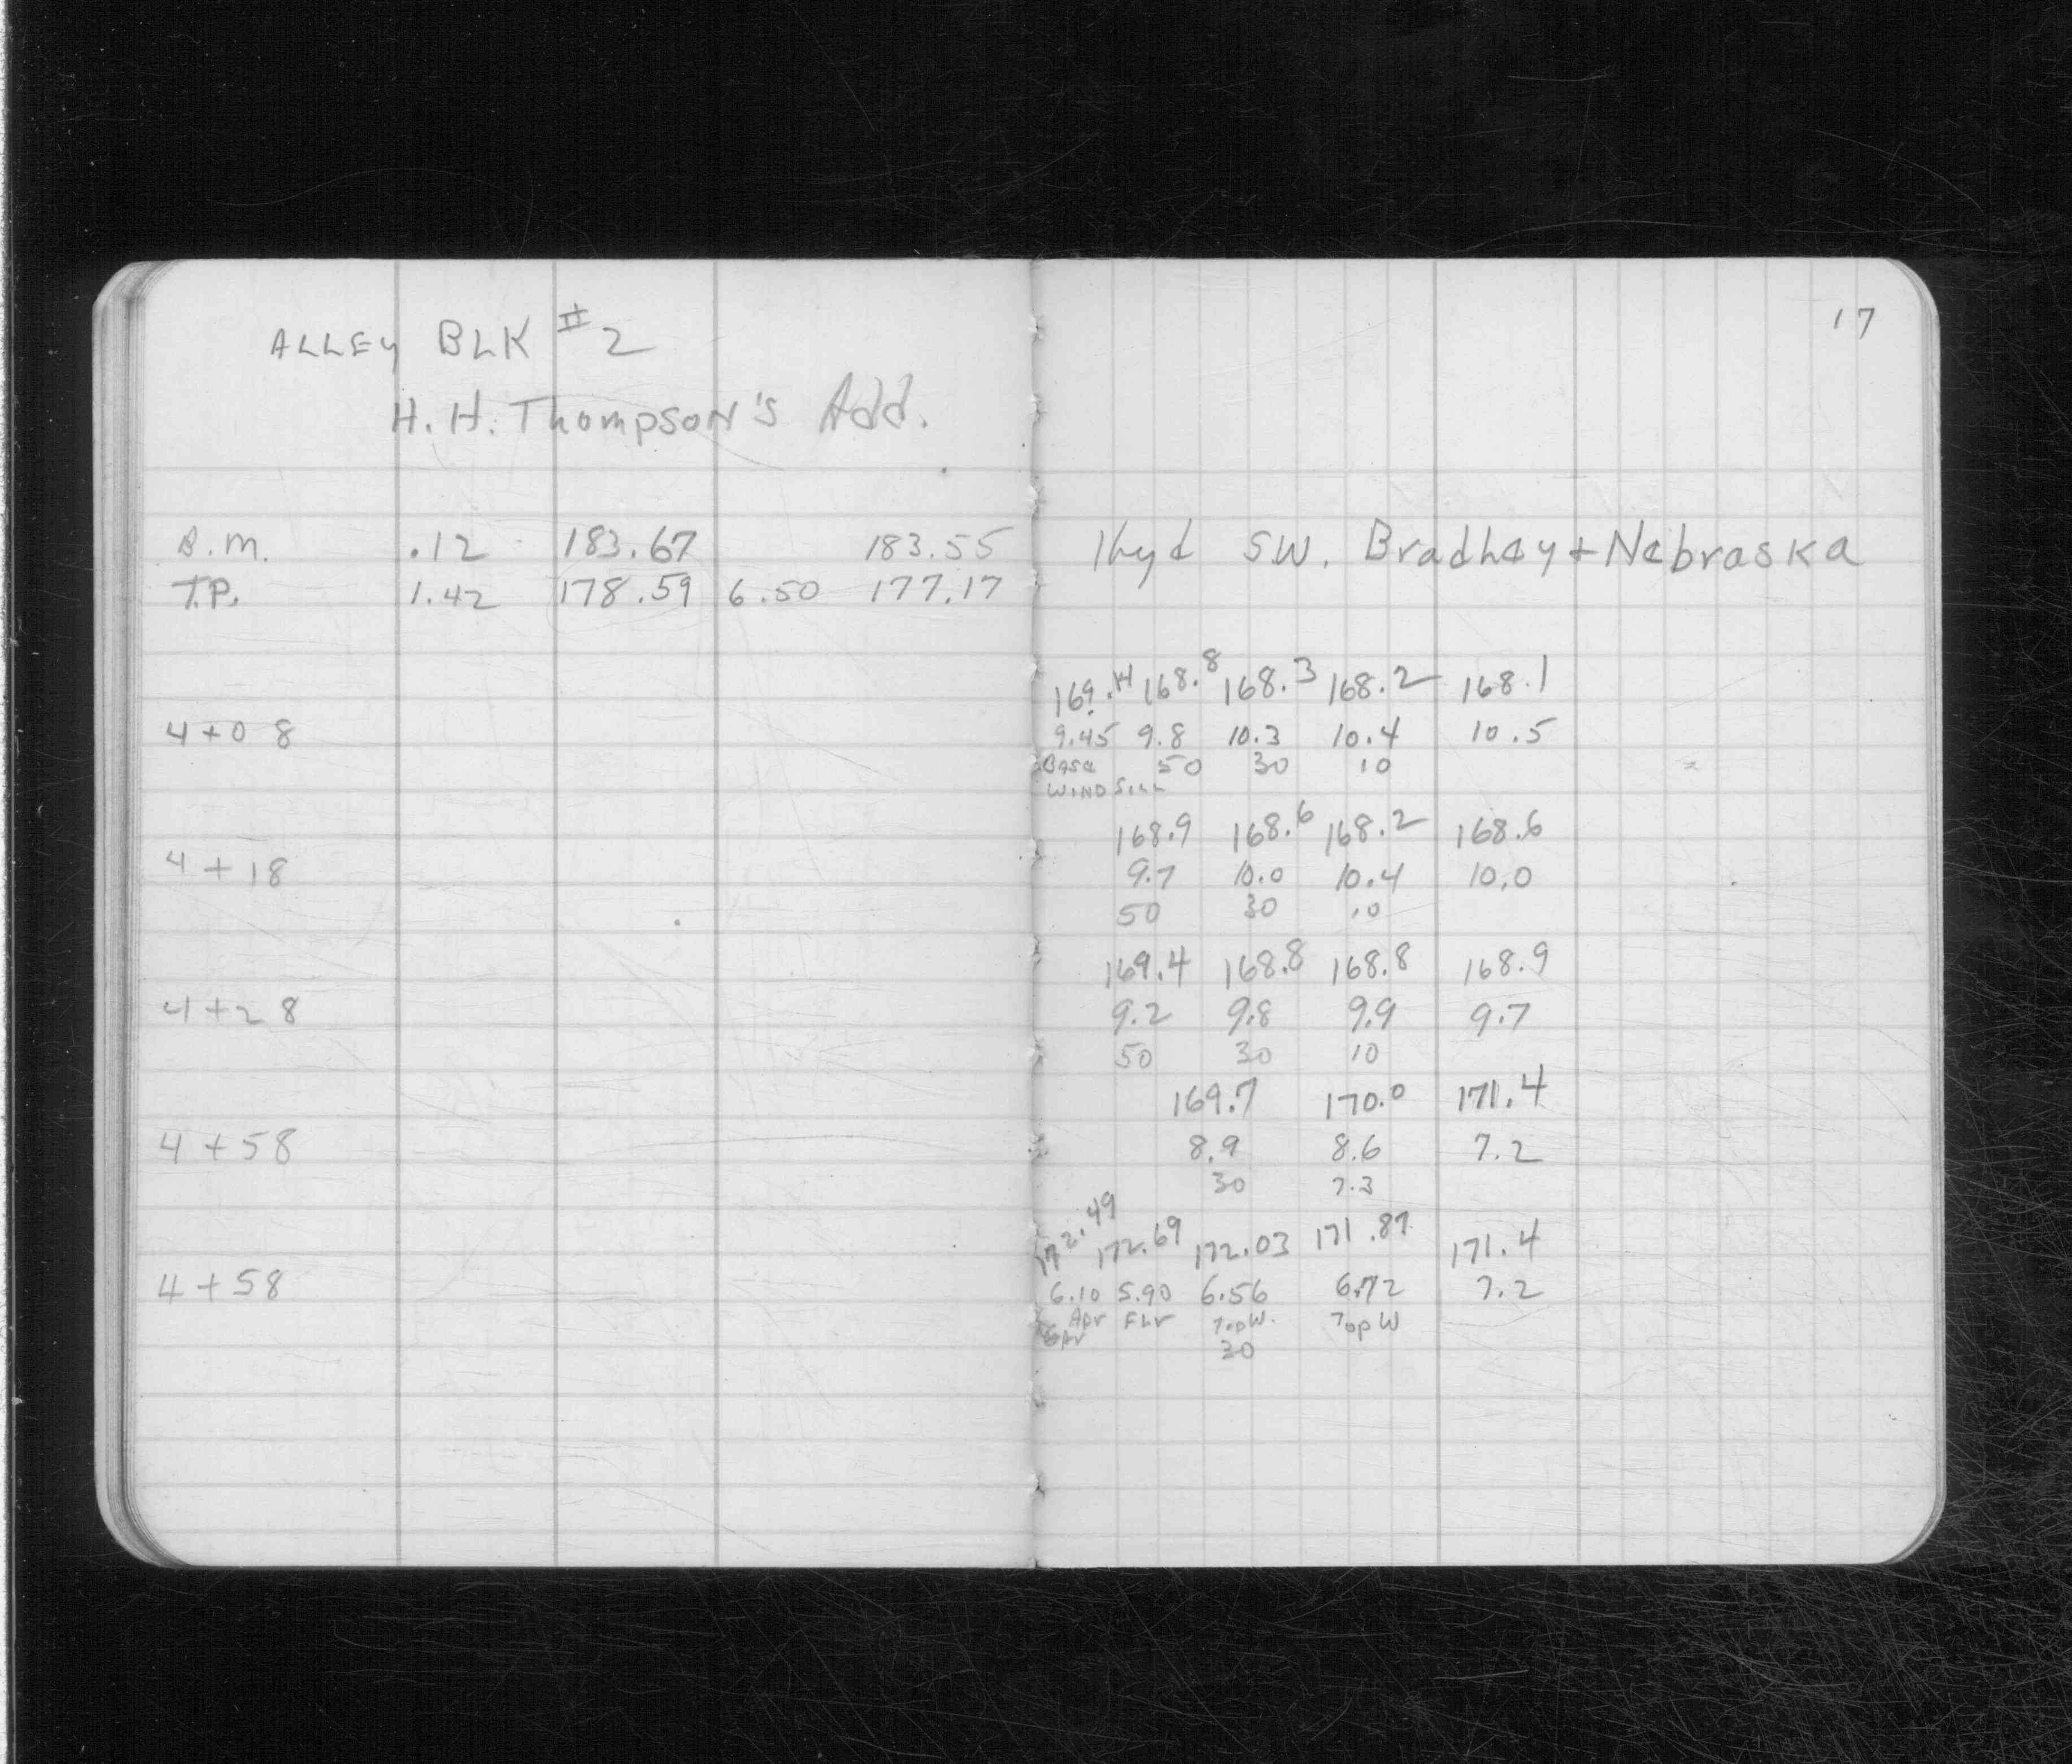 17
ALLEY BLK #2
H. H. Thompson's Add.
B.M. .12 183.67 183.55 Hyd SW. Bradley + Nebraska
T.P. 1.42 178.59 6.50 177.17
169.14 168.8 168.3 168.2 168.1
4+08 9.45 9.8 10.3 10.4 10.5
Base 50 30 10
WIND SILL
168.9 168.6 168.2 168.6
4+18 9.7 10.0 10.4 10.0
50 30 10
169.4 168.8 168.8 168.9
4+28 9.2 9.8 9.9 9.7
50 30 10
169.7 170.0 171.4
4+58 8.9 8.6 7.2
30 7.3
172.49 172.69 172.03 171.87 171.4
4+58 6.10 5.90 6.56 6.72 7.2
Apr Flr Top W. Top W
Gar
30